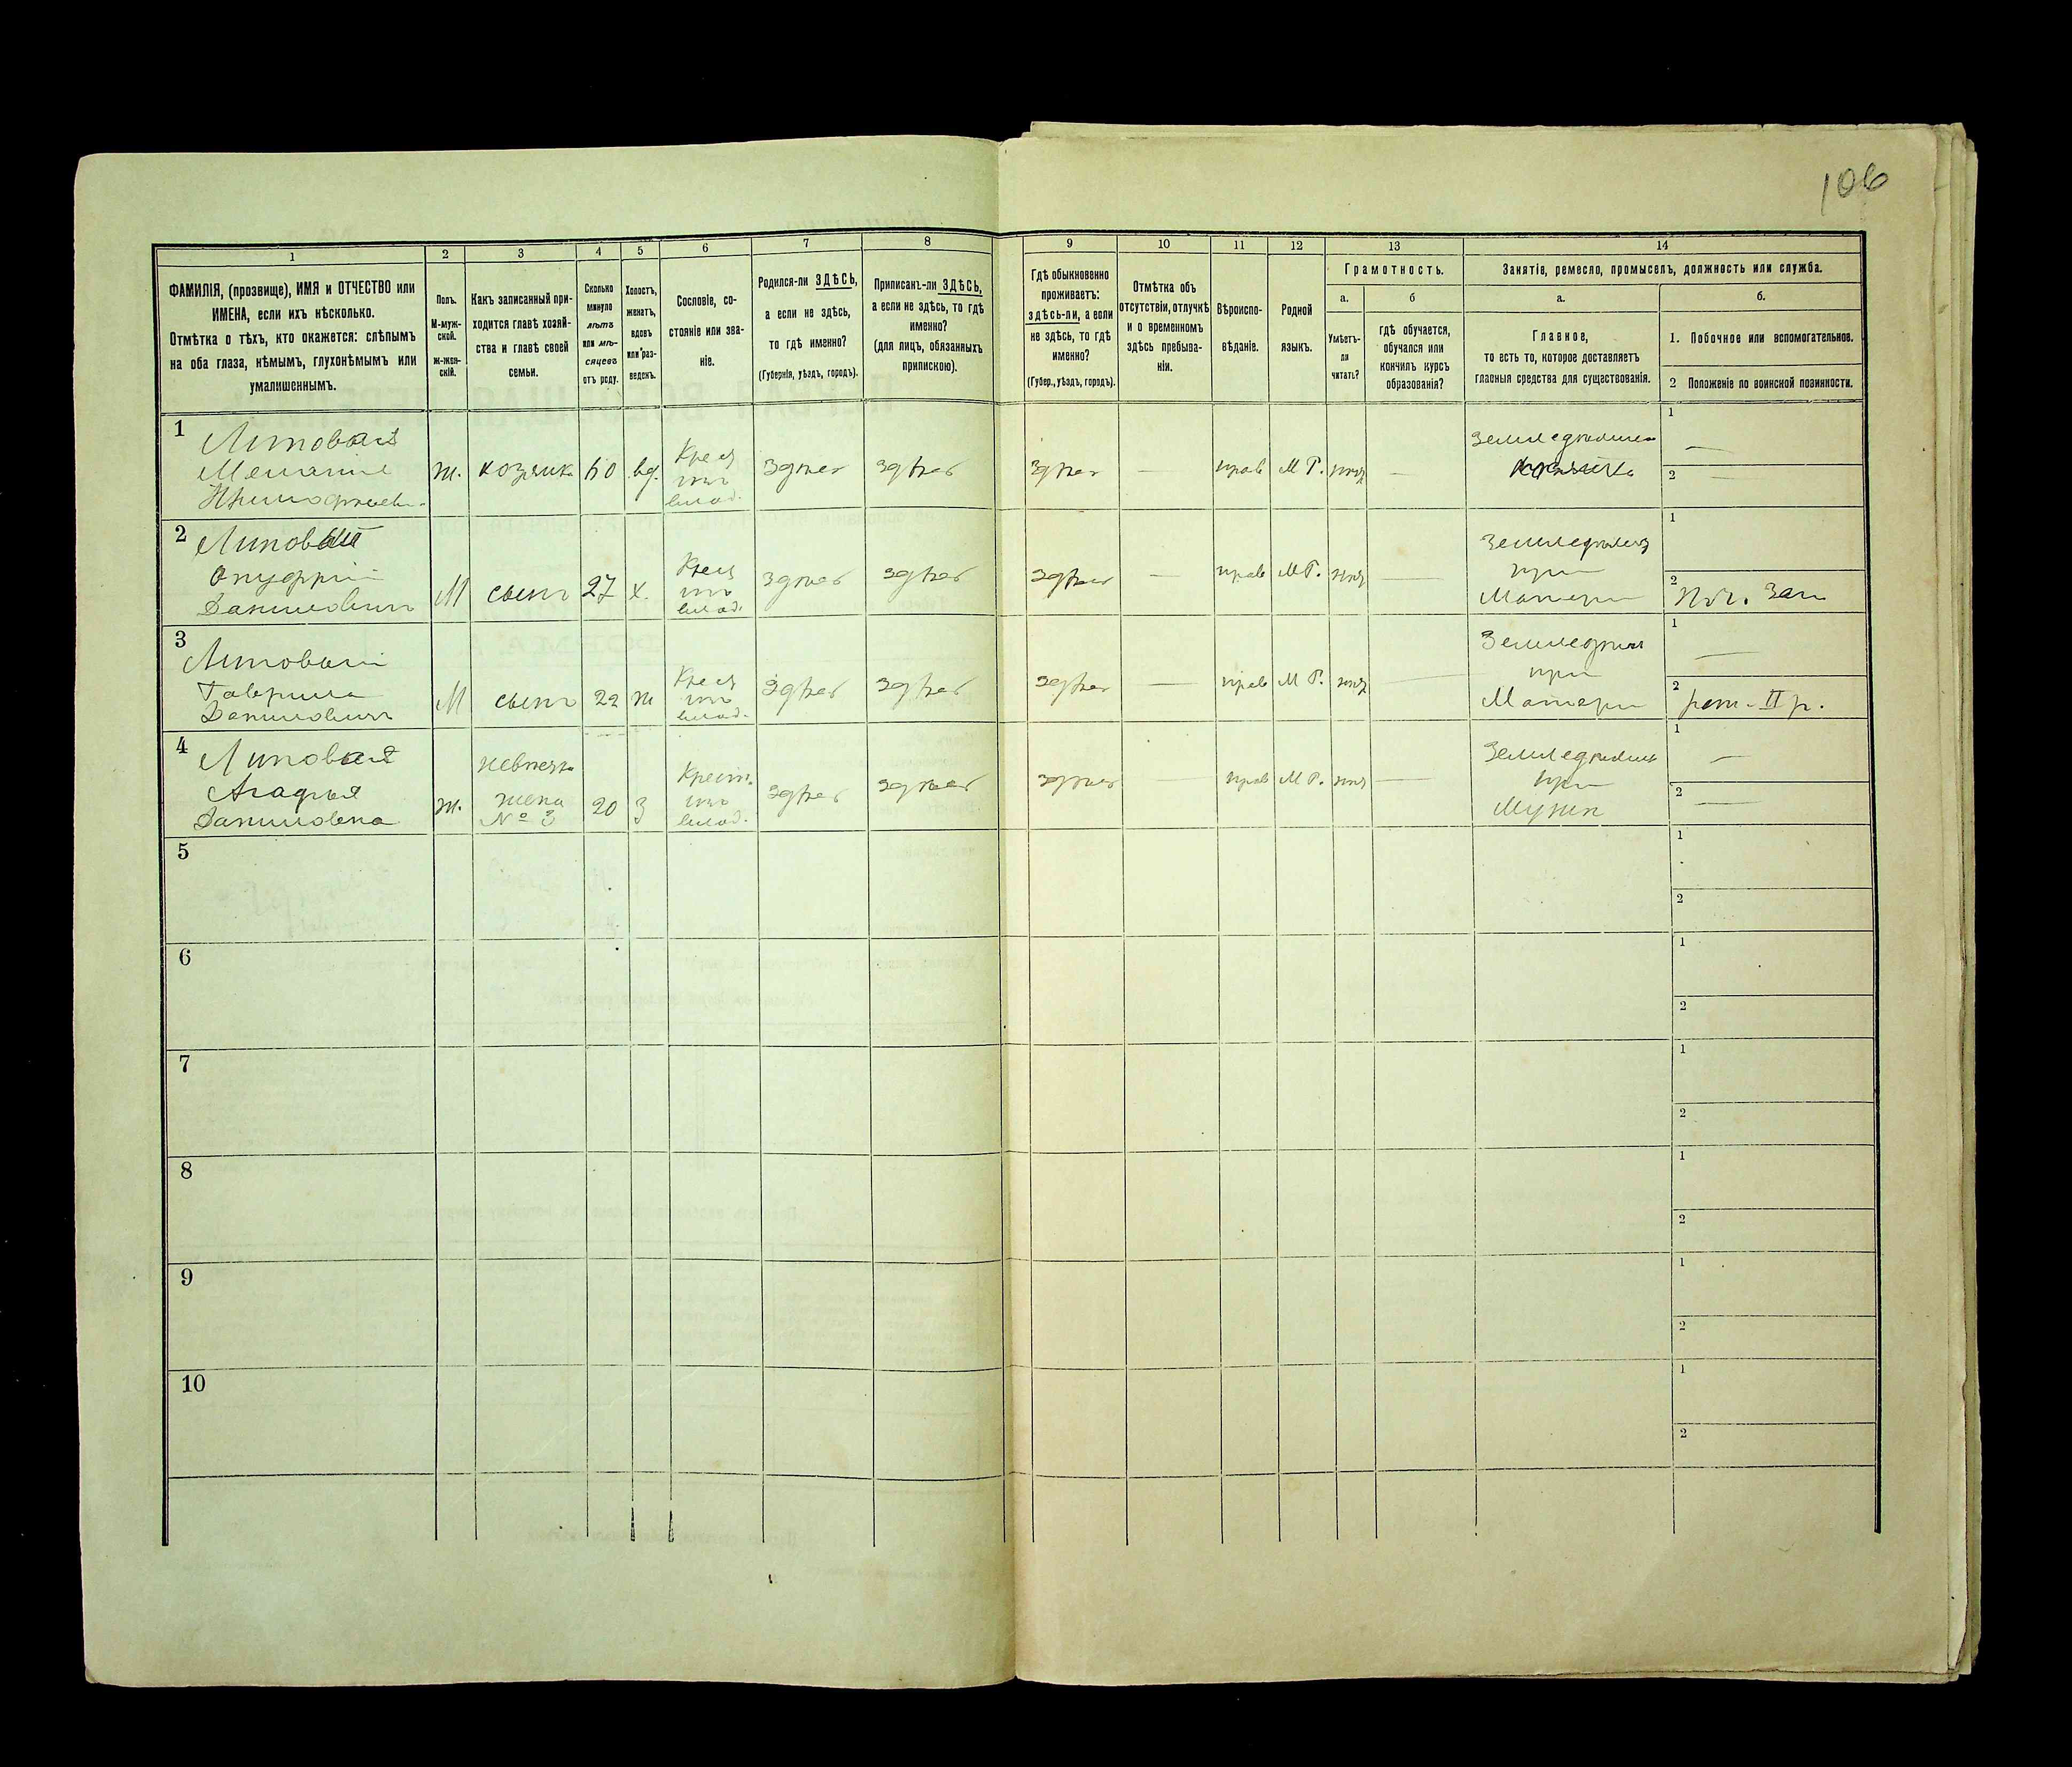 106
1 2 3 4 5 6 7 8 9 10 11 12 13 14
ФАМИЛІЯ, (прозвище), ИМЯ и ОТЧЕСТВО или
ИМЕНА, если ихъ нѣсколько.
Отмѣтка о тѣхъ, кто окажется: слѣпымъ
на оба глаза, нѣмымъ, глухонѣмымъ или
умалишеннымъ.
Полъ.
М-муж-
ской.
ж-жен-
скій.
Какъ записанный при-
ходится главѣ хозяй-
ства и главѣ своей
семьи.
Сколько
минуло
лѣтъ
или мѣ-
сяцевъ
отъ роду.
Холостъ,
женатъ,
вдовъ
или раз-
веденъ.
Сословіе, со-
стояніе или зва-
ніе.
Родился-ли ЗДѢСЬ,
а если не здѣсь,
то гдѣ именно?
(Губернія, уѣздъ, городъ).
Приписанъ-ли ЗДѢСЬ,
а если не здѣсь, то гдѣ
именно?
(для лицъ, обязанныхъ
припискою).
Гдѣ обыкновенно
проживаетъ:
здѣсь-ли, а если
не здѣсь, то гдѣ
именно?
(Губер., уѣздъ, городъ).
Отмѣтка объ
отсутствіи, отлучкѣ
и о временномъ
здѣсь пребыва-
ніи.
Вѣроиспо-
вѣданіе.
Родной
языкъ.
Грамотность.
а.
Умѣетъ-
ли
читать?
б
гдѣ обучается,
обучался или
кончилъ курсъ
образованія?
Занятіе, ремесло, промыселъ, должность или служба.
а.
Главное,
то есть то, которое доставляетъ
главныя средства для существованія.
б.
1. Побочное или вспомогательное.
2 Положеніе по воинской повинности.
1
Меланія
ж. 60 вд.
здѣсь здѣсь здѣсь — прав М Р. —
1 —
2 —
2
Онуфрій
Даниловичъ
М сынъ 27 х.
здѣсь здѣсь здѣсь — прав М Р. —
при
Матери
1
2
3
Гаврило
Даниловичъ
М сынъ 22 ж
здѣсь здѣсь здѣсь — прав М Р. —
при
Матери
1 —
2 рат. II р.
4
Агафья
Даниловна
ж. невѣстка
жена
№ 3
20 З
Крест.
здѣсь здѣсь здѣсь — прав М Р. —
при
Мужѣ
1 —
2 —
5 1
2
6 1
2
7 1
2
8 1
2
9 1
2
10 1
2